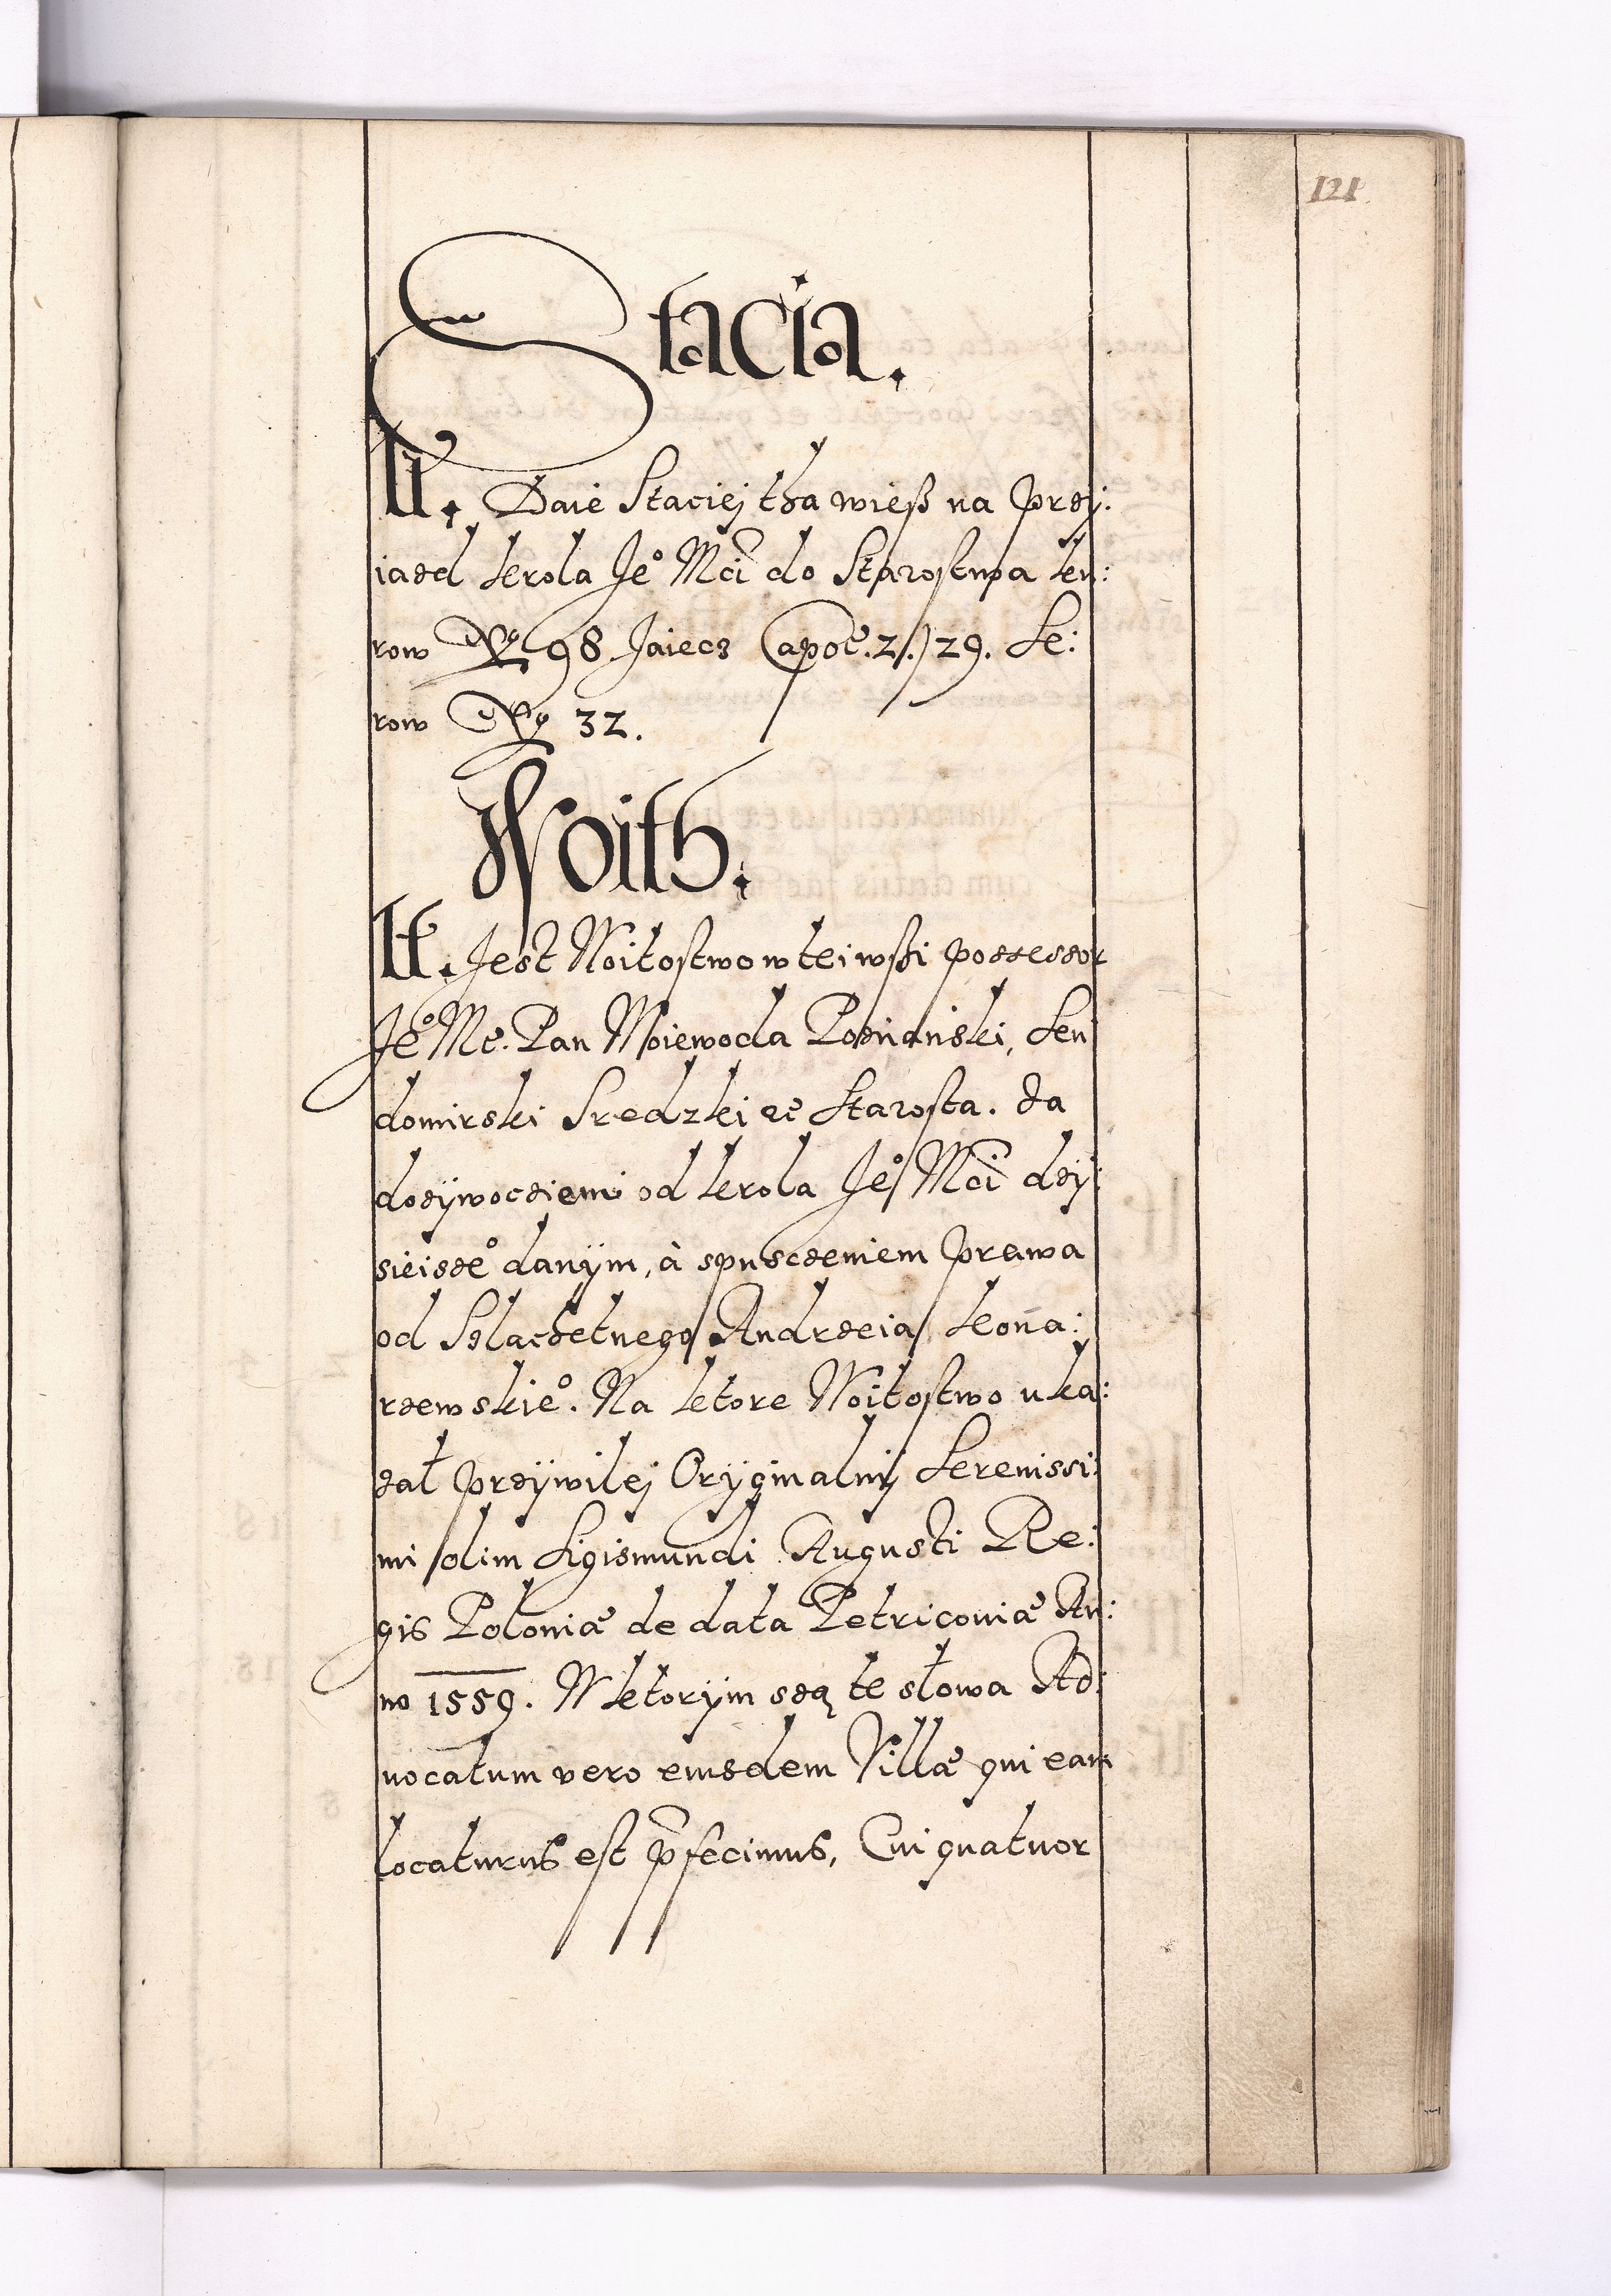 121
Stacia.
It. Daie Staciej tha wieß na przÿ:
iazd krola Jeº Mći do Starostwa ku:
row Nº 98 Jaiecz Capoē. 2.) 29. Se:
row Nº 32.
Woith.
It. Jest Woitostwo w tei wßi possessor
Jeº Mć. Pan Woiewoda Poznański, Sen
domirski Sredzki ec Starosta. Za
dozÿwocziem od krola Jeº Mći dzÿ:
sieiszeº danÿm, à spusczeniem prawa
od Szlachetnego Andrzeia Kona:
rzewskieº. Na ktore Woitostwo uka:
zał przÿwilej Orÿginalnÿ Serenissi:
mi olim Sigismundi Augusti Re:
gis Poloniæ de data Petricoviæ An:
no 1559. W ktorÿm są te słowa Ad:
uocatum vero eiusdem Villæ qui eam
locaturus est p̄fecimus, Cui quatuor